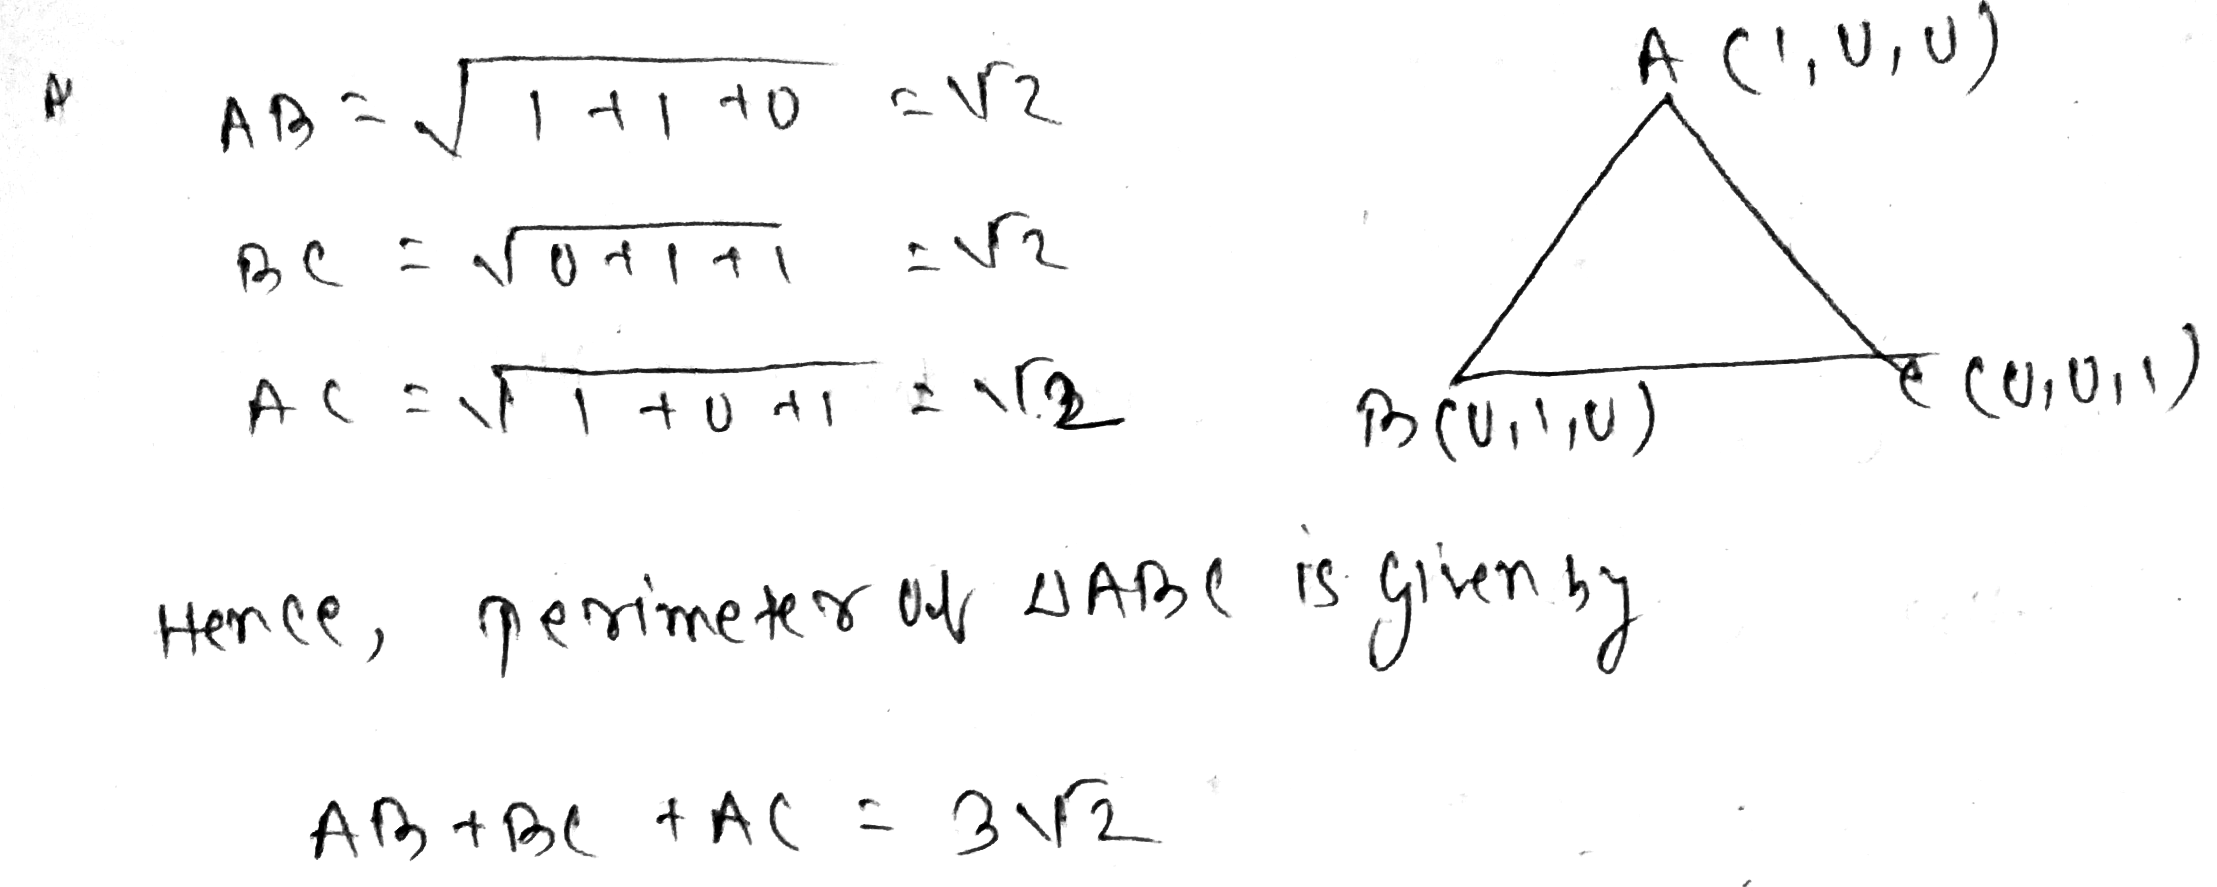 A (1, 0, 0)
AB = √1+1+0 = √2
BC = √0+1+1 = √2
AC = √1+0+1 = √2
B(0,1,0)
C (0,0,1)
Hence, perimeter of ΔABC is given by
AB + BC + AC = 3√2